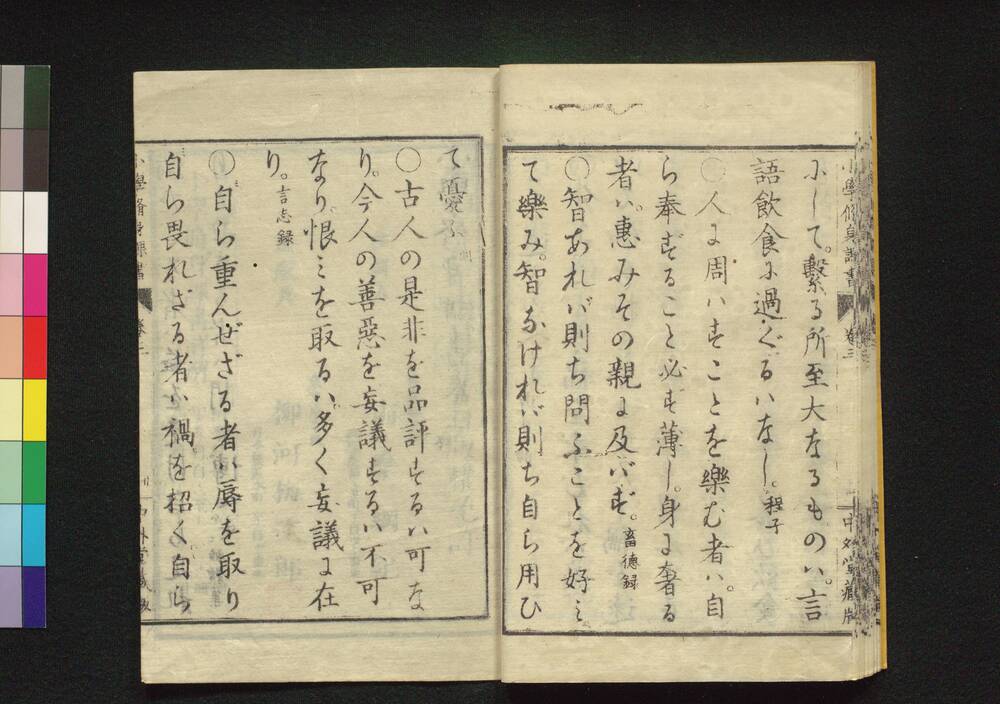 小學修身訓書 卷三
にして。繫る所至大なるものハ。言
語飮食に過ぐるハなし。程子
〇人に周ハすことを樂む者ハ。自
ら奉ずること必ず薄し。身に奢る
者ハ。惠みその親に及バず。畜德録
〇智あれバ則ち問ふことを好ミ
て樂み。智なけれバ則ち自ら用ひ
中外堂藏版
て憂ふ
〇古人の是非を品評するハ可な
り。今人の善惡を妄議するハ不可
なり。恨ミを取るハ。多く妄議に在
り。言志録
〇自ら重んぜざる者ハ。辱を取り
自ら畏れざる者ハ禍を招く。自ら
中外堂藏版